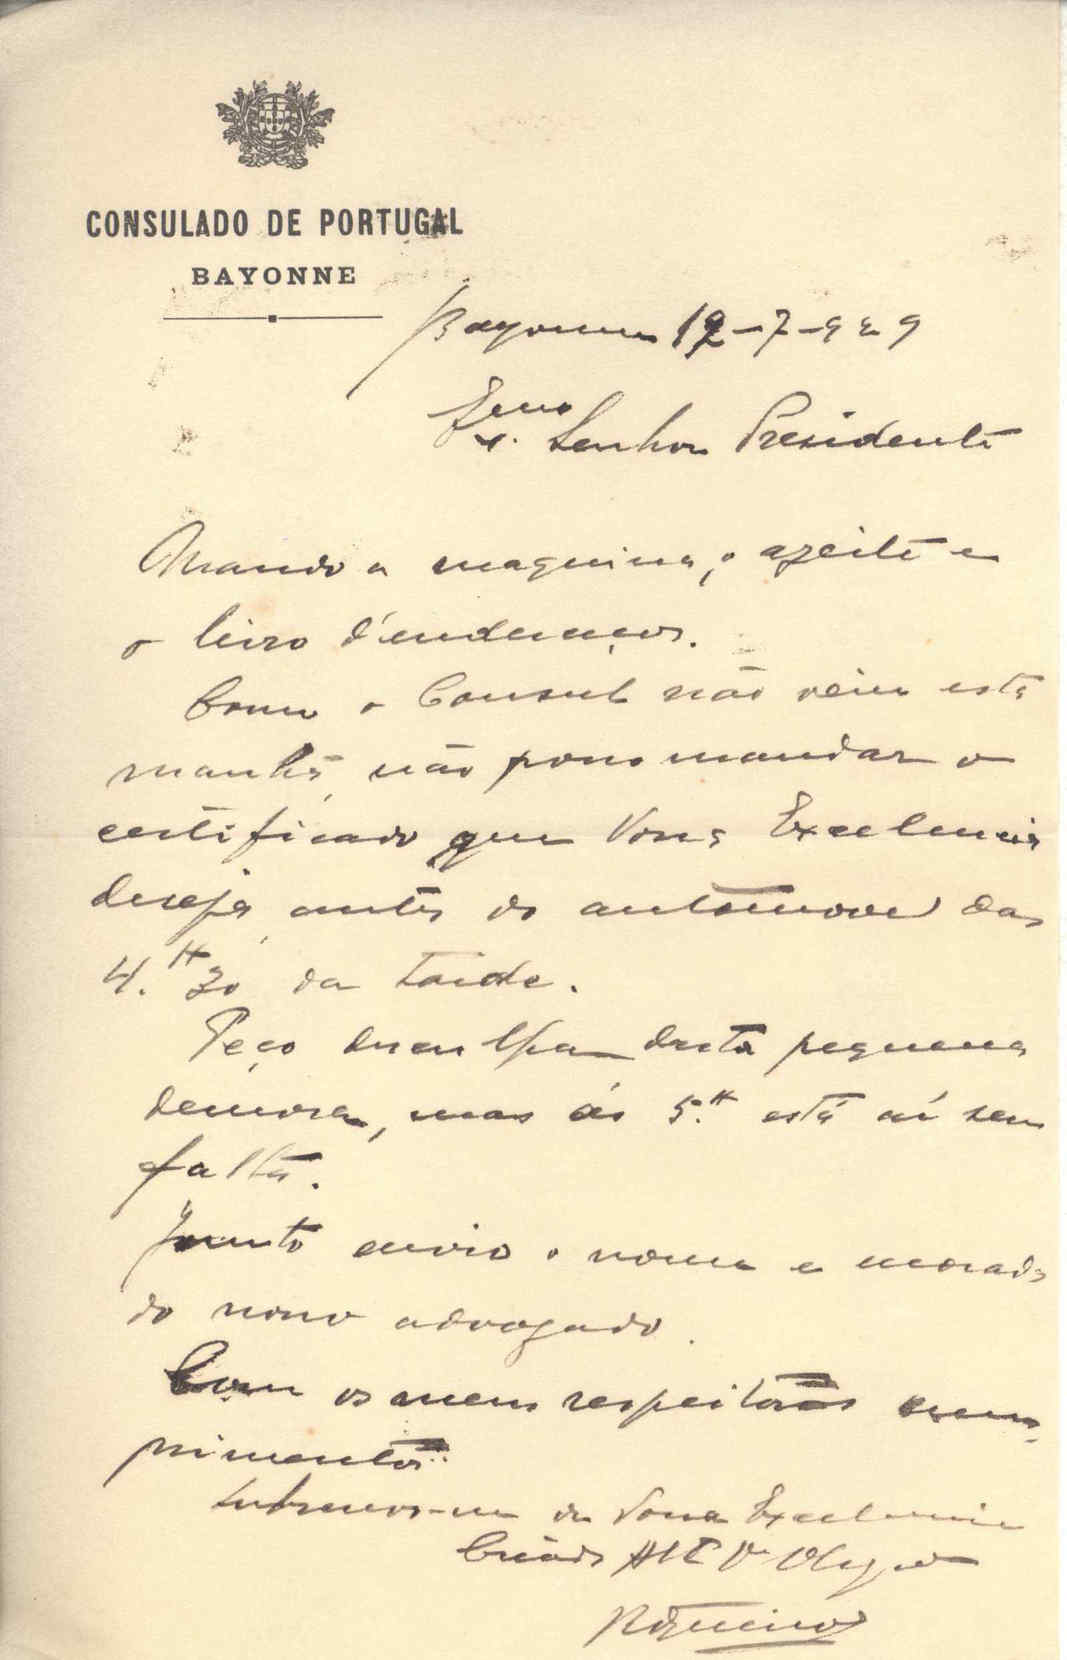 CONSULADO DE PORTUGAL
BAYONNE
Bayonne 12-7-929
Exmo. Senhor Presidente
Mando a maquina, o azeite e
o livro d'endereços.
Como o Consul não veiu esta
manhã, não posso mandar o
certificado que Vossa Excelencia
deseja, antes do automovel das
4.H 30 da tarde.
Peço desculpa desta pequena
demora, mas ás 5.H está aí sem
falta.
Junto envio o nome e morada
do novo advogado.
Com os meus respeitosos cum-
primentos.
Subscrevo-me de Vossa Excelencia
Criado Att Vor Obrgdo